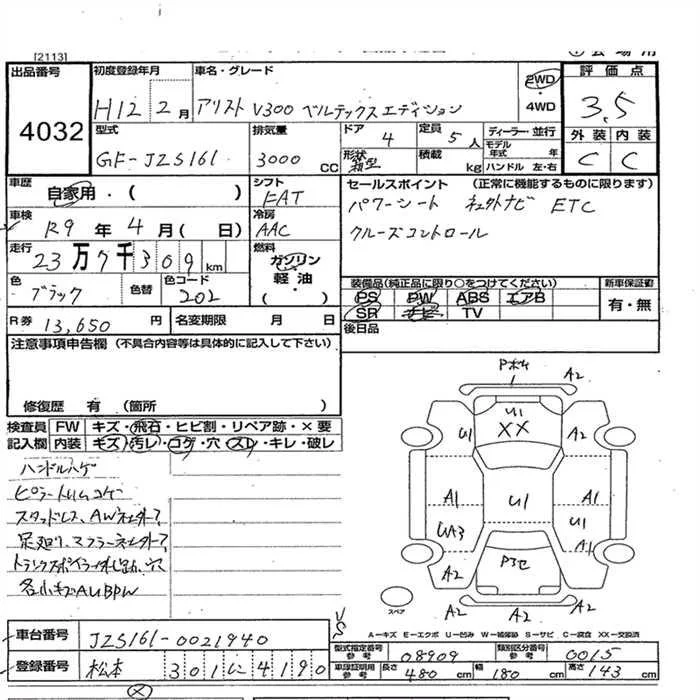 [2113]
出品番号 4032
初度登録年月 H12 2月
車名・グレード アリスト V300 ベルテックスエディション
2WD・4WD
評価点 3.5
型式 GF-JZS161
排気量 3000 CC
ドア 4
形状 箱型
定員 5人
積載 kg
ディーラー・並行
モデル年式 年式
ハンドル 左・右
外装 内装
C C
車歴 自家用・( )
シフト FAT
車検 R9年 4月 ( 日)
冷房 AAC
走行 23万7千309km
燃料 ガソリン・軽油・( )
色 ブラック 色替
色コード 202
R券 13,650円
名変期限 月 日
セールスポイント (正常に機能するものに限ります)
パワーシート 社外ナビ ETC
クルーズコントロール
装備品(純正品に限り○をつけてください)
PS PW ABS エアB
SR ナビ TV
新車保証書 有・無
後日品
注意事項申告欄 (不具合内容等は具体的に記入して下さい)
修復歴 有 (箇所 )
検査員記入欄
FW キズ・飛石・ヒビ割・リペア跡・×要
内装 キズ・汚レ・コゲ・穴・スレ・キレ・破レ
ハンドルハゲ
ピラートリムコゲ
スタッドレス、AW社外?
足廻り、マフラー社外?
各小キズAUBPW
Pボキ A2
U1 XX
U1 A2
A1 U1 A1
UA3 U1
A1
A2 Pヨセ A2
A2 A2 A2
スペア
A−キズ E−エクボ U−凹み W−補修跡 S−サビ C−腐食 XX−交換済
車台番号 JZS161-0021940
登録番号 松本 301 に 4190
型式指定番号 参考 08909
類別区分番号 参考 0015
車庫証明用 参考 長さ 480cm 幅 180cm 高さ 143cm